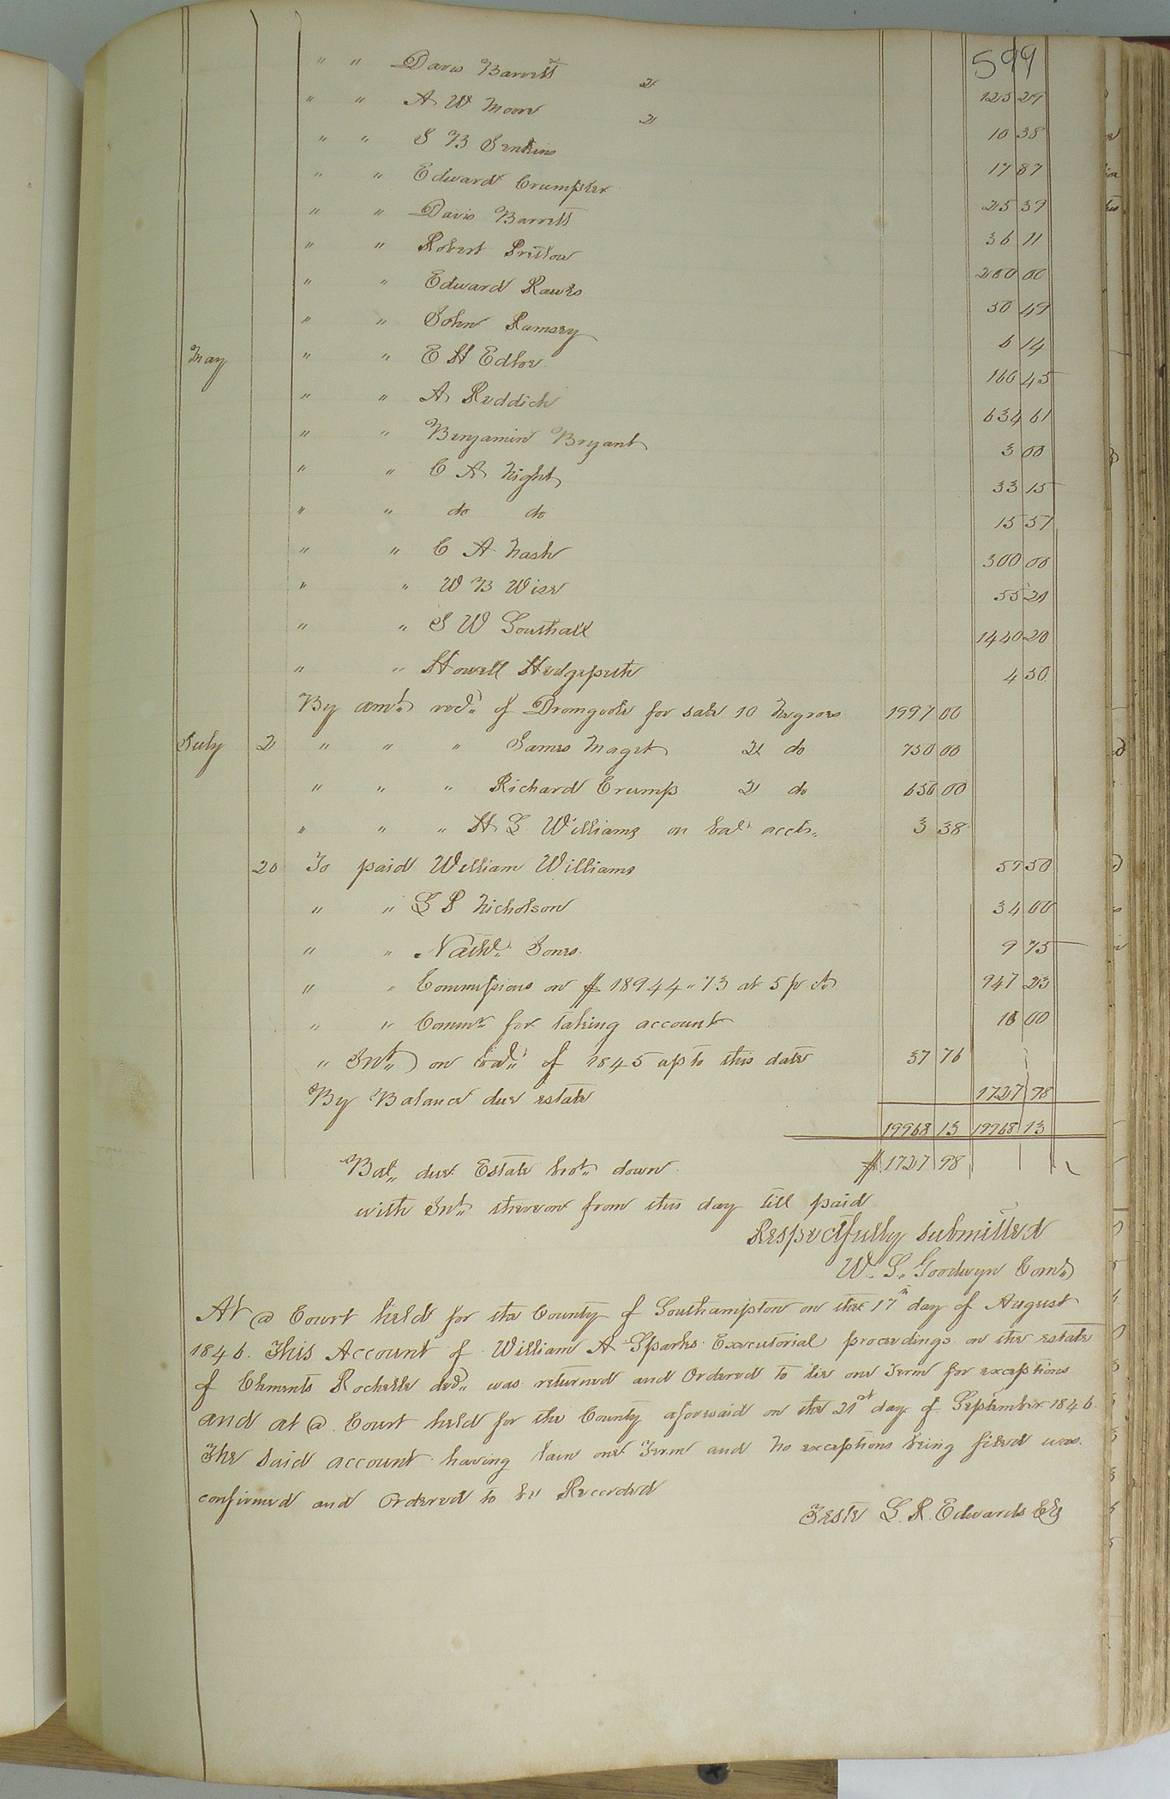 599
" " Davis Barrett 2 125 29
" " A W Moore 2 10 38
" " S B Jenkins 17 87
" " Edward Crumpler 25 39
" " Davis Barrett 36 11
" " Robert Pretlow 200 00
" " Edward Rawls 50 49
" " John Ramsey 6 14
May " " E H Edloe 166 45
" " A Reddick 634 61
" " Benjamin Bryant 3 00
" " C A Night 33 15
" " do do 15 57
" " C A Nash 300 00
" " W B Wise 55 21
" " S W Southall 1440 20
" " Howell Hedgepeth 4 50
By amt. recd. of Dromgoole for sale 10 Negroes 1997 00
July 2 " " " James Maget 2 do 750 00
" " " Richard Crump 2 do 656 00
" " " H L Williams on bal. accts. 3 38
20 To paid William Williams 59 50
" " L P Nicholson 34 00
" " Nathl. Jones 9 75
" " Commissions on $ 18944.73 at 5 p ct 947 23
" " Commr. for taking account 18 00
" Int. on bal. of 1845 up to this date 37 76
By Balance due estate 1727 98
19968 13 19968 13
Bal. due Estate brot. down $1727 98
with Int. thereon from this day till paid
Respectfully submitted
W. S. Goodwyn Comr.
At a Court held for the County of Southampton on the 17th day of August
1846. This Account of William A Sparks Executorial proceedings on the estate
of Clements Rochelle decd. was returned and Ordered to lie one Term for exceptions
and at a Court held for the County aforesaid on the 21st day of September 1846.
The said account having lain one Term and no exceptions being filed was
confirmed and Ordered to be Recorded
Teste L. R. Edwards Clk